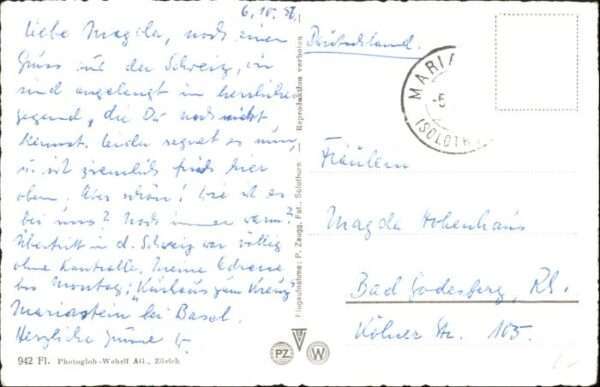 6.10.51
Liebe Magda, noch einen
Gruss aus der Schweiz, wir
sind angelangt in herrlicher
Gegend, die Du noch nicht
kennst. Leider regnet es nun,
u. ist ziemlich frisch hier
oben. Aber schön! Wie ist es
bei uns? Noch immer warm?
Übertritt in d. Schweiz war völlig
ohne Kontrolle. Meine Adresse
bis Montag: "Kurhaus zum Kreuz"
Mariastein bei Basel.
Herzliche Grüsse
942 Fl. Photoglob-Wehrli AG., Zürich
Flugaufnahme: P. Zaugg, Fot., Solothurn Reproduktion verboten
PZ W
Deutschland.
MARIA
(SOLOTH
Fräulein
Magda Hohenhaus
Bad Godesberg, Rh.
Kölner Str. 105.